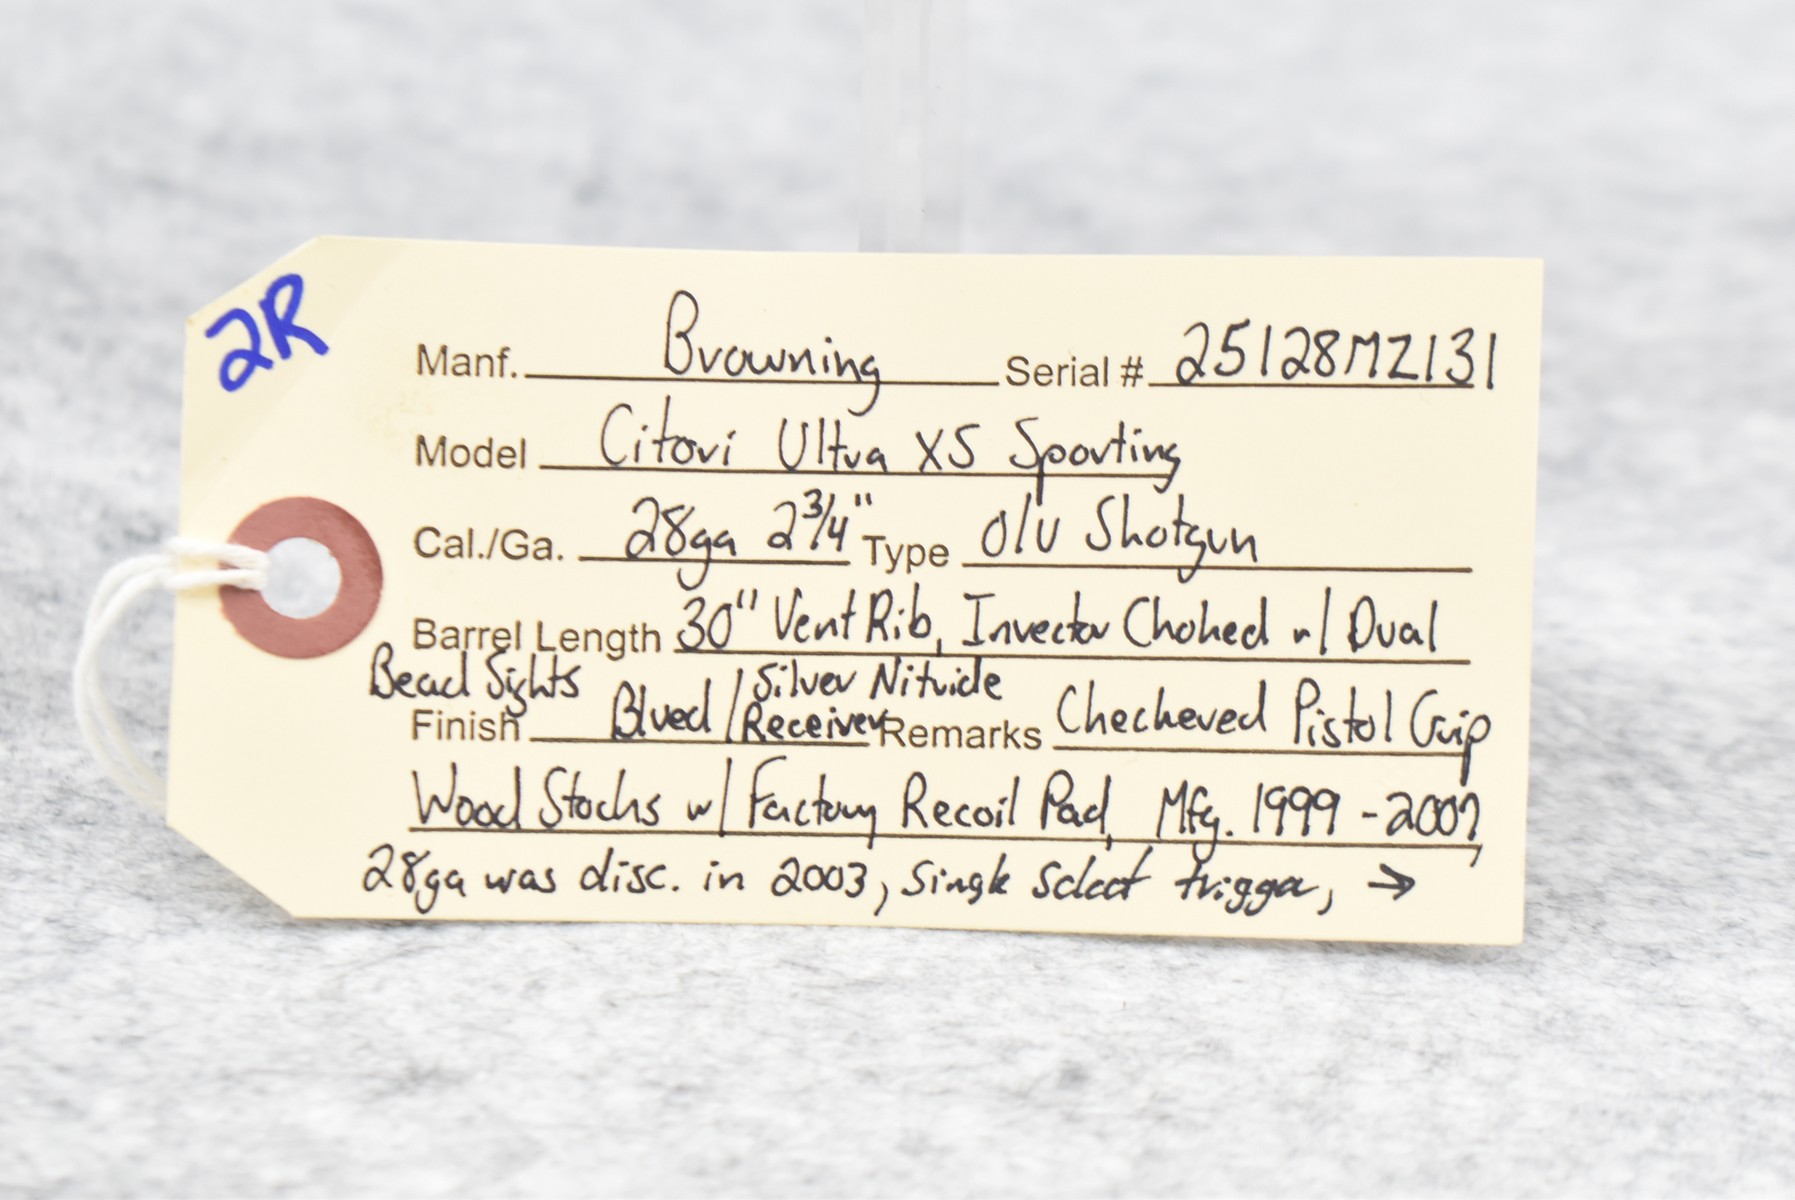 2R
Manf. Browning Serial # 25128MZ131
Model Citori Ultra XS Sporting
Cal./Ga. 28ga 2 3/4" Type O/U Shotgun
Barrel Length 30" Vent Rib, Invector Choked w/ Dual
Bead Sights
Finish Blued / Silver Nitride Receiver Remarks Checkered Pistol Grip
Wood Stocks w/ Factory Recoil Pad, Mfg. 1999-2007,
28ga was disc. in 2003, Single Select trigger, →